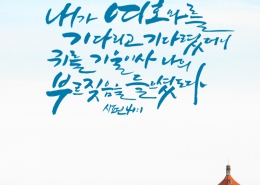 내가 여호와를
기다리고 기다렸더니
귀를 기울이사 나의
부르짖음을 들으셨도다
시편 40:1